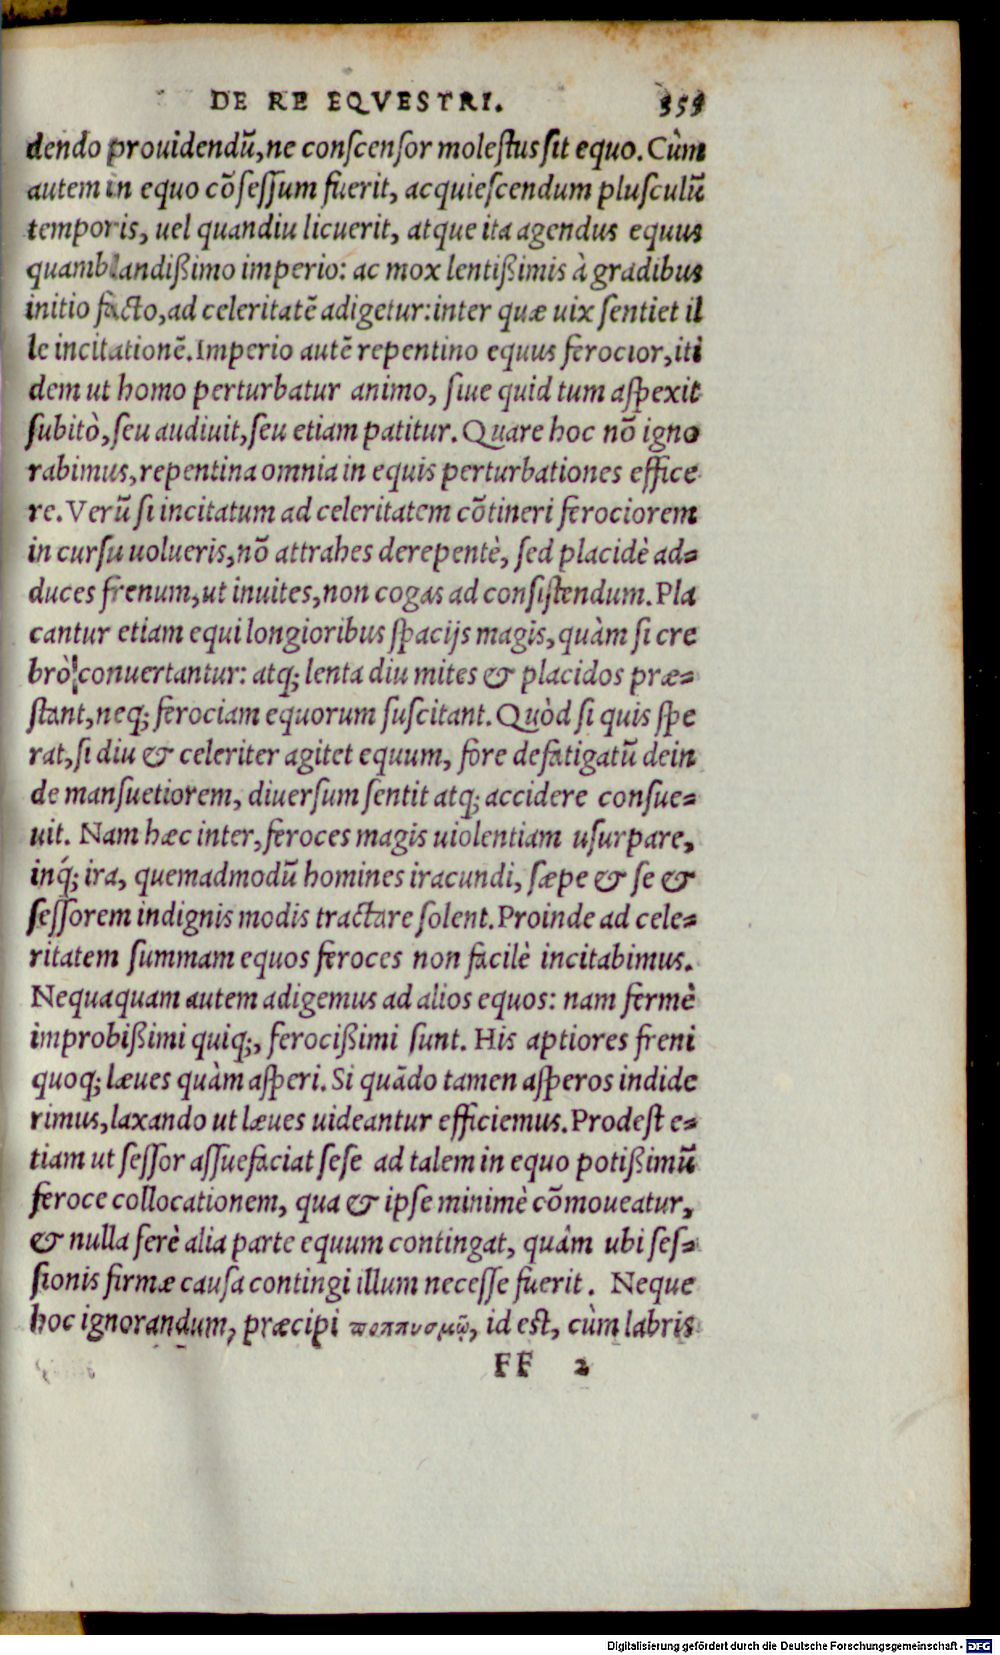 DE RE EQVESTRI. 359
dendo prouidendũ, ne conscensor molestus sit equo. Cùm
autem in equo cõsessum fuerit, acquiescendum plusculũ
temporis, uel quandiu licuerit, atque ita agendus equus
quamblandißimo imperio: ac mox lentißimis à gradibus
initio facto, ad celeritatẽ adigetur: inter quæ uix sentiet il
le incitationẽ. Imperio autẽ repentino equus ferocior, iti
dem ut homo perturbatur animo, siue quid tum aspexit
subitò, seu audiuit, seu etiam patitur. Quare hoc nõ igno
rabimus, repentina omnia in equis perturbationes effice
re. Verũ si incitatum ad celeritatem cõtineri ferociorem
in cursu uolueris, nõ attrahes derepentè, sed placidè ad=
duces frenum, ut inuites, non cogas ad consistendum. Pla
cantur etiam equi longioribus spacijs magis, quàm si cre
brò conuertantur: atq; lenta diu mites & placidos præ=
stant, neq; ferociam equorum suscitant. Quòd si quis spe
rat, si diu & celeriter agitet equum, fore defatigatũ dein
de mansuetiorem, diuersum sentit atq; accidere consue=
uit. Nam hæc inter, feroces magis uiolentiam usurpare,
inq́; ira, quemadmodũ homines iracundi, sæpe & se &
sessorem indignis modis tractare solent. Proinde ad cele=
ritatem summam equos feroces non facilè incitabimus.
Nequaquam autem adigemus ad alios equos: nam fermè
improbißimi quiq;, ferocißimi sunt. His aptiores freni
quoq; læues quàm asperi. Si quãdo tamen asperos indide
rimus, laxando ut læues uideantur efficiemus. Prodest e=
tiam ut sessor assuefaciat sese ad talem in equo potißimũ
feroce collocationem, qua & ipse minimè cõmoueatur,
& nulla ferè alia parte equum contingat, quàm ubi ses=
sionis firmæ causa contingi illum necesse fuerit. Neque
hoc ignorandum, præcipi ποππυσμῷ, id est, cùm labris
FF 2
Digitalisierung gefördert durch die Deutsche Forschungsgemeinschaft - DFG